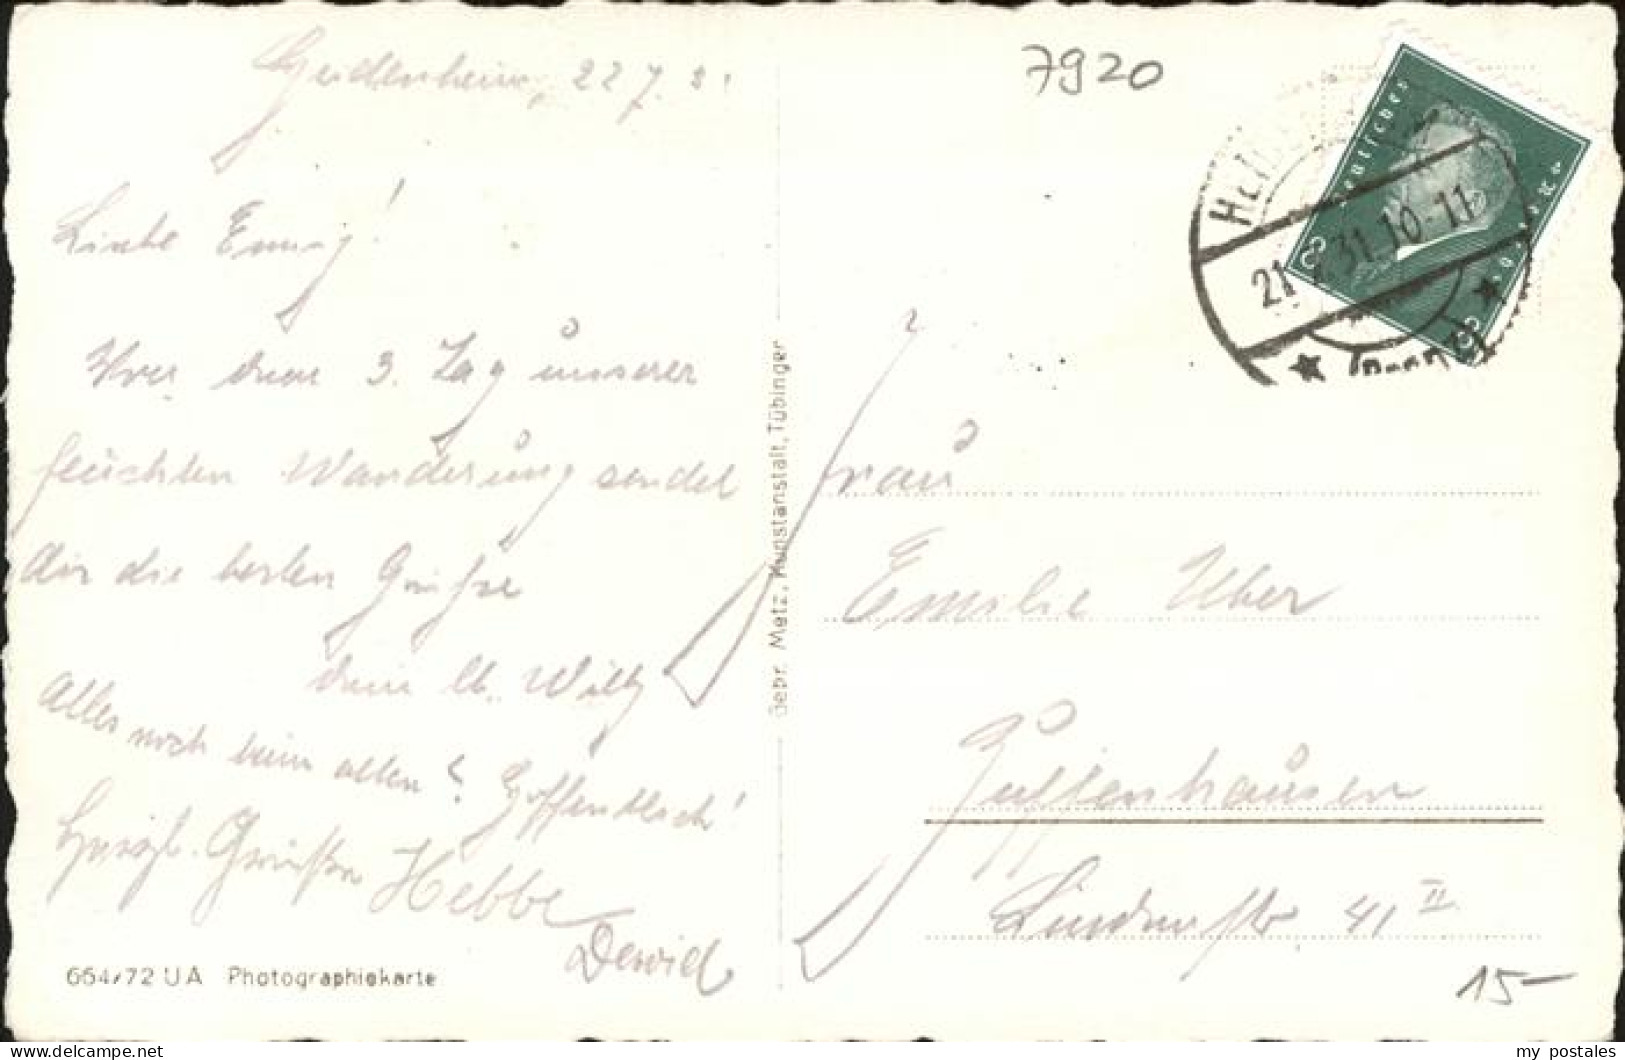 Heidenheim, 22 7. 31
Liebe Emmy!
Von dem 3. Tag unserer
feuchten Wanderung sendet
dir die besten Grüße
dein lb. Willy
Alles noch beim alten? Hoffentlich!
Herzl. Grüße Hebbe
David
664/72 UA Photographiekarte
Gebr. Metz, Kunstanstalt, Tübingen
7920
Deutsches Reich
8 8
21. 7. 31. 10-11
Frau
Emilie Uber
Zuffenhausen
Lindenstr 41 II
15-
my_postales